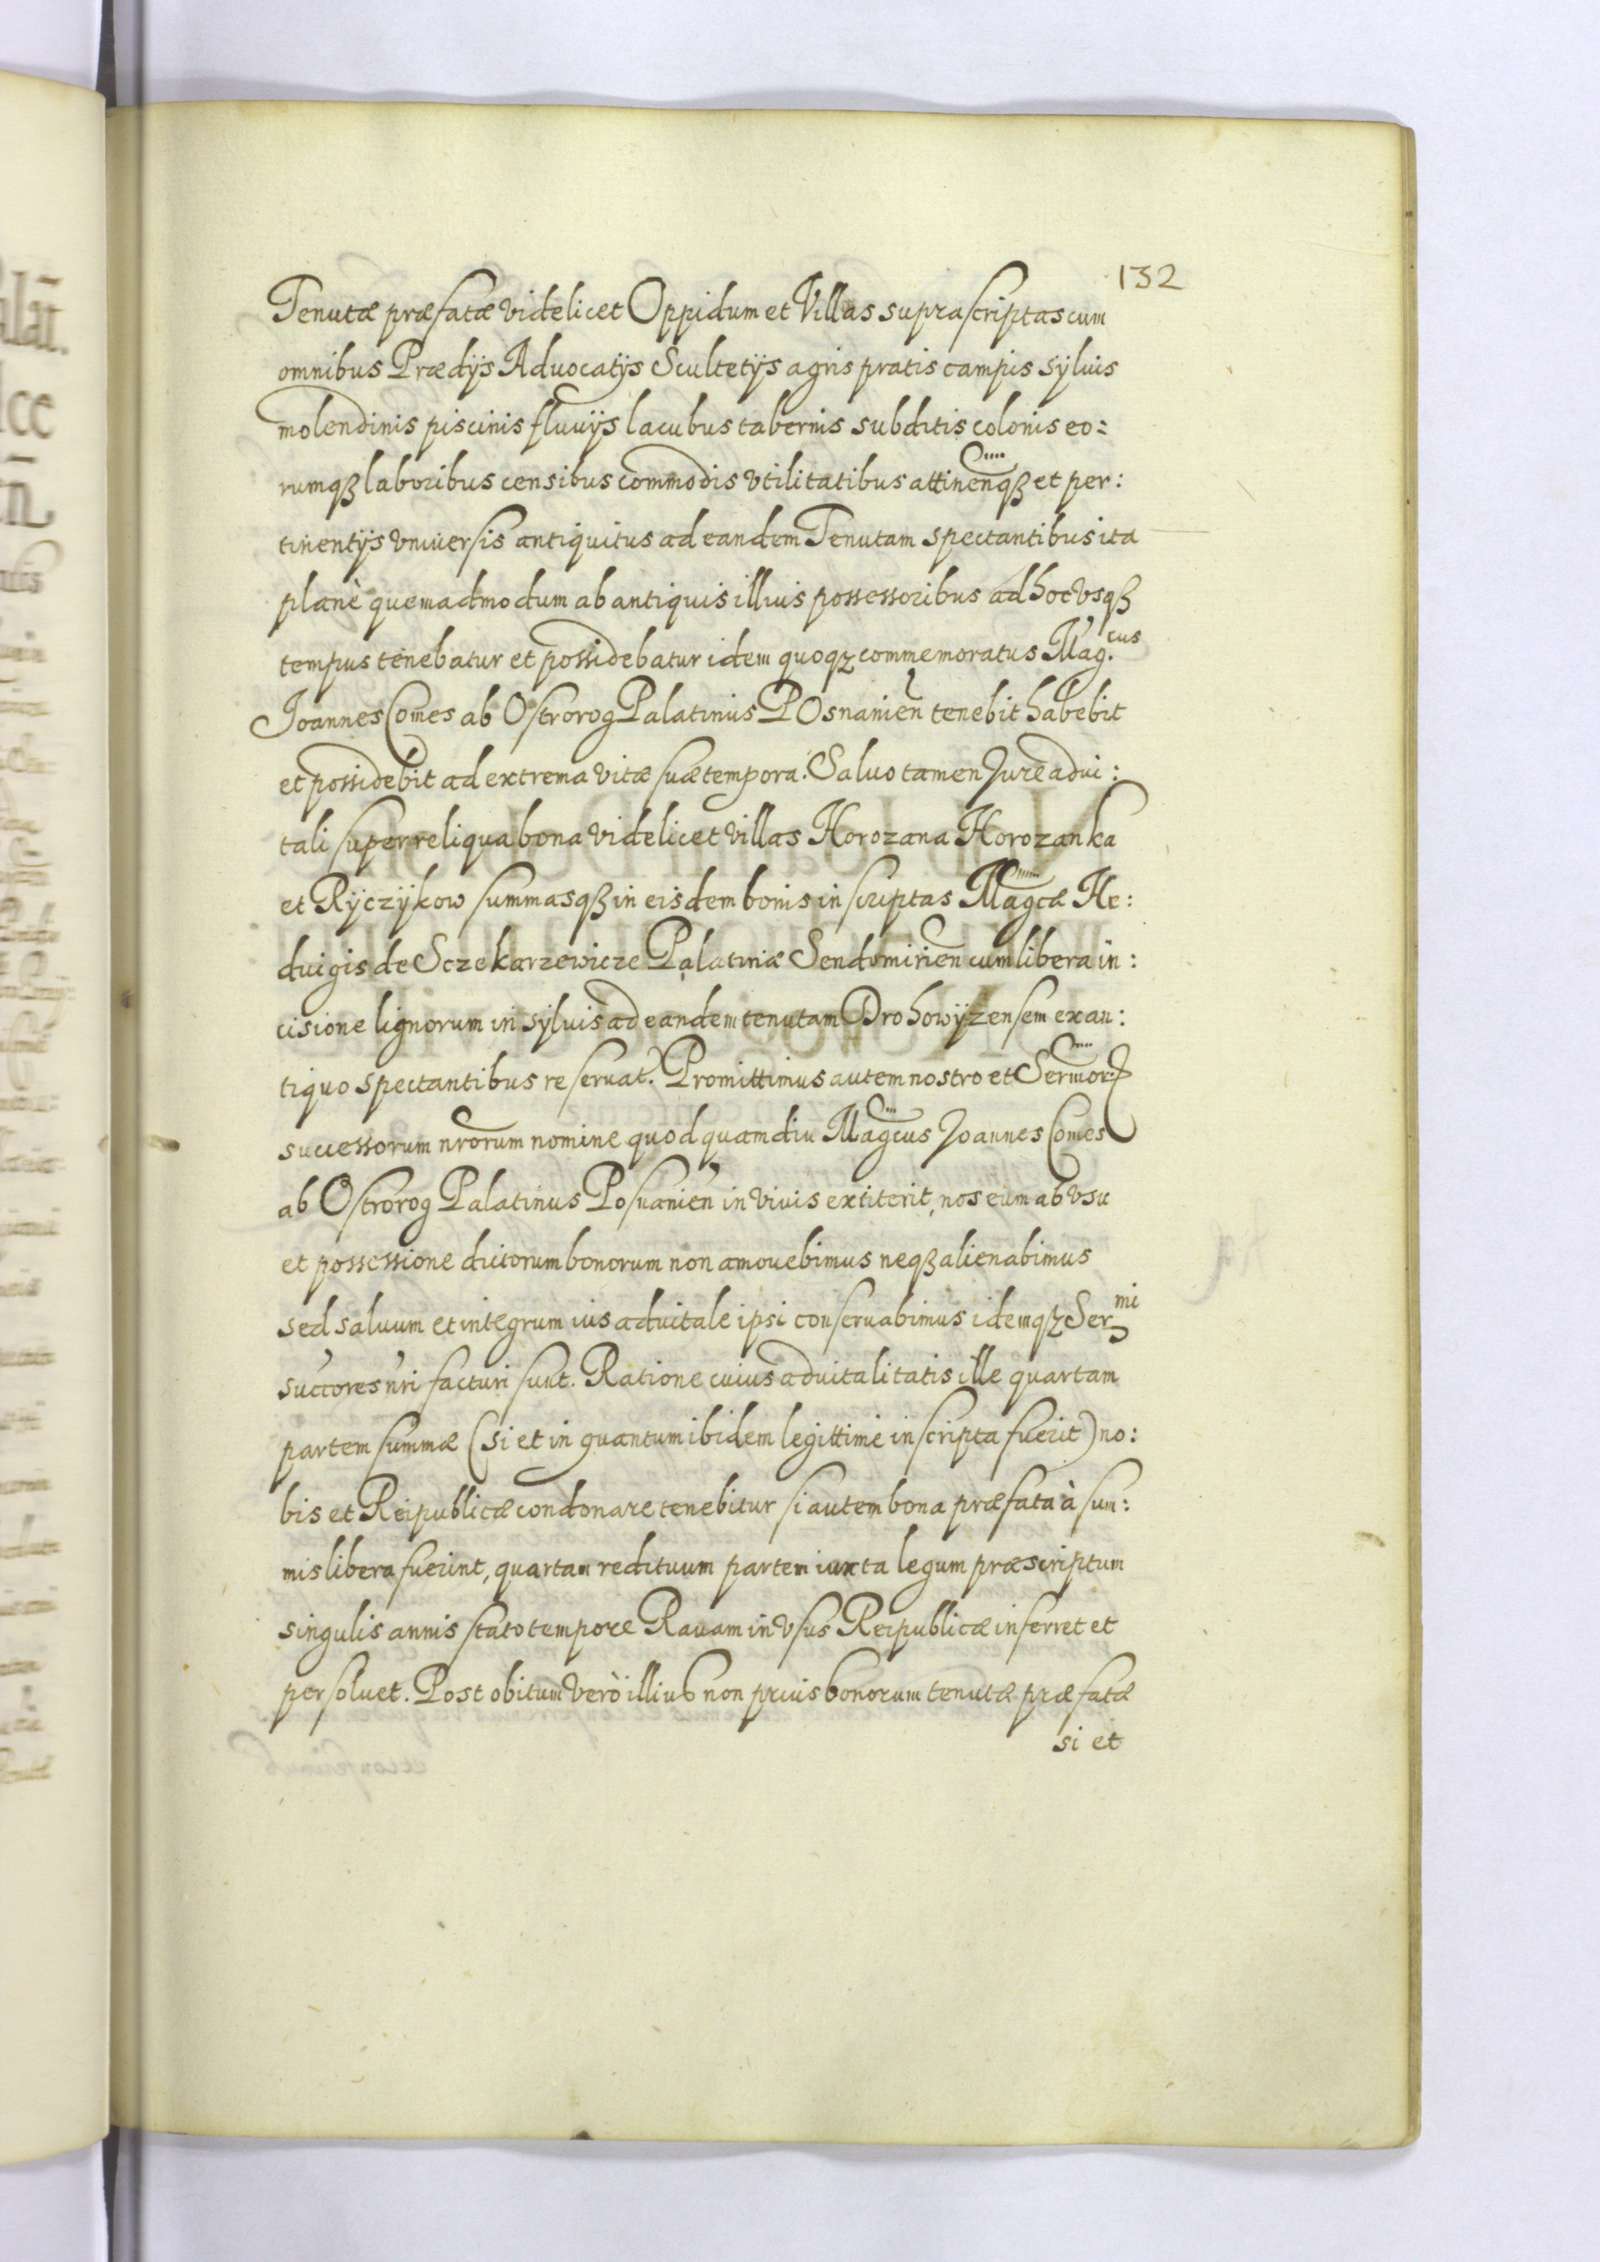 132
Tenutæ præfatæ videlicet Oppidum et Villas suprascriptas cum
omnibus Prædijs Aduocatijs Scultetijs agris pratis campis syluis
molendinis piscinis fluuijs lacubus tabernis subditis colonis eo:
rumqȝ laboribus censibus commodis vtilitatibus attinen̄qȝ et per:
tinentijs vniuersis antiquitus ad eandem Tenutam spectantibus ita
planè quemadmodum ab antiquis illius possessoribus ad hoc vsqȝ
tempus tenebatur et possidebatur idem quoqȝ commemoratus Mag.cus
Joannes Comes ab Ostrorog Palatinus POsnanien̄ tenebit habebit
et possidebit ad extrema vitæ suæ tempora. Saluo tamen Jure adui:
tali super reliqua bona videlicet villas Horozana Horozanka
et Ryczykow summasqȝ in eisdem bonis inscriptas Magcæ He:
duigis de Sczekarzewicze Palatinæ Sendomirien̄ cum libera in:
cisione lignorum in syluis ad eandem tenutam Drohowyzensem ex an:
tiquo spectantibus reseruat. Promittimus autem nostro et Sermorꝝ
successorum nrorum nomine quod quamdiu Magcus Joannes Comes
ab Ostrorog Palatinus Posnanien̄ in viuis extiterit, nos eum ab vsu
et possessione dictorum bonorum non amouebimus neqȝ alienabimus
sed saluum et integrum ius aduitale ipsi conseruabimus idemqȝ Sermi
succores nri facturi sunt. Ratione cuius aduitalitatis ille quartam
partem summæ (si et in quantum ibidem legittimè inscripta fuerit) no:
bis et Reipublicæ condonare tenebitur si autem bona præfata à sum:
mis libera fuerint, quartam redituum partem iuxta legum præscriptum
singulis annis stato tempore Rauam in vsus Reipublicæ inferret et
persoluet. Post obitum verò illius non prius bonorum tenutæ præfatæ
si et